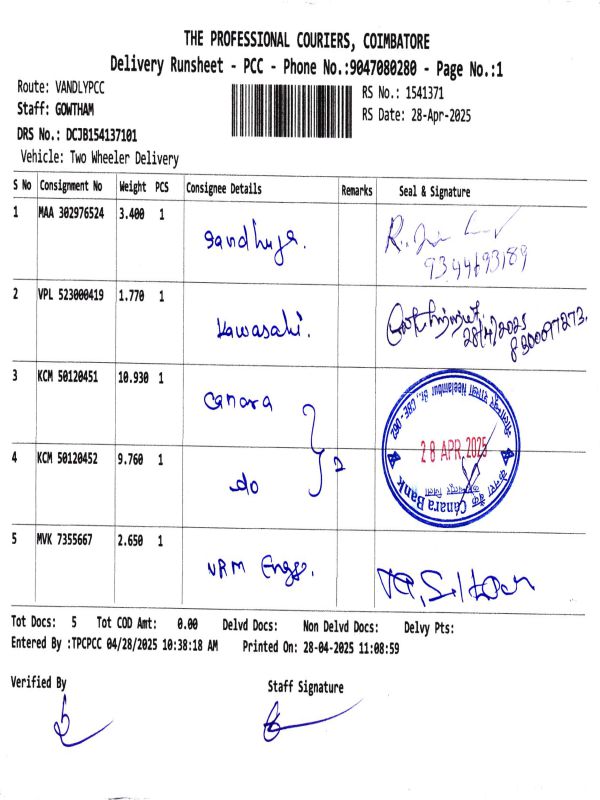 THE PROFESSIONAL COURIERS, COIMBATORE
Delivery Runsheet - PCC - Phone No.:9047080280 - Page No.:1
Route: VANDLYPCC
RS No.: 1541371
Staff: GOWTHAM
RS Date: 28-Apr-2025
DRS No.: DCJB154137101
Vehicle: Two Wheeler Delivery
S No Consignment No Weight PCS Consignee Details Remarks Seal & Signature
1 MAA 302976524 3.400 1
9344693189
2 VPL 523000419 1.770 1 Kawasaki.
28/4/2025
8200097273.
3 KCM 50120451 10.930 1 Canara
28 APR 2025
4 KCM 50120452 9.760 1 do 2
Canara Bank
5 MVK 7355667 2.650 1 VRM Enggs.
Tot Docs: 5 Tot COD Amt: 0.00 Delvd Docs: Non Delvd Docs: Delvy Pts:
Entered By :TPCPCC 04/28/2025 10:38:18 AM Printed On: 28-04-2025 11:08:59
Verified By
Staff Signature